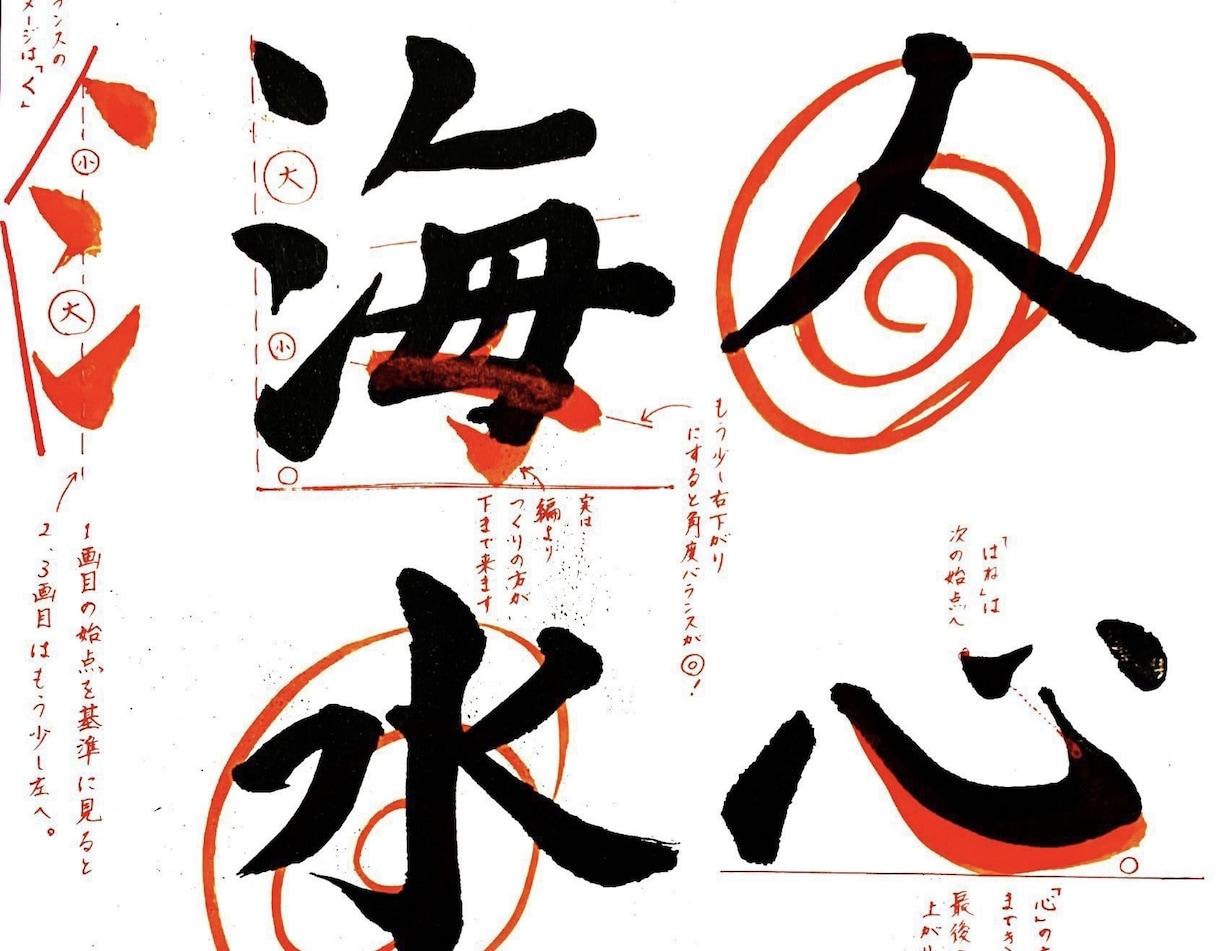 人
「はね」は
次の始点へ
心
「心」の
最後
上がり
もう少し右下がり
にすると角度バランスが◎!
海
大
小
実は……
編より
つくりの方が
下まで来ます
水
ンスの
メージは「く」
小
大
1画目の始点を基準に見ると
2、3画目はもう少し左へ。